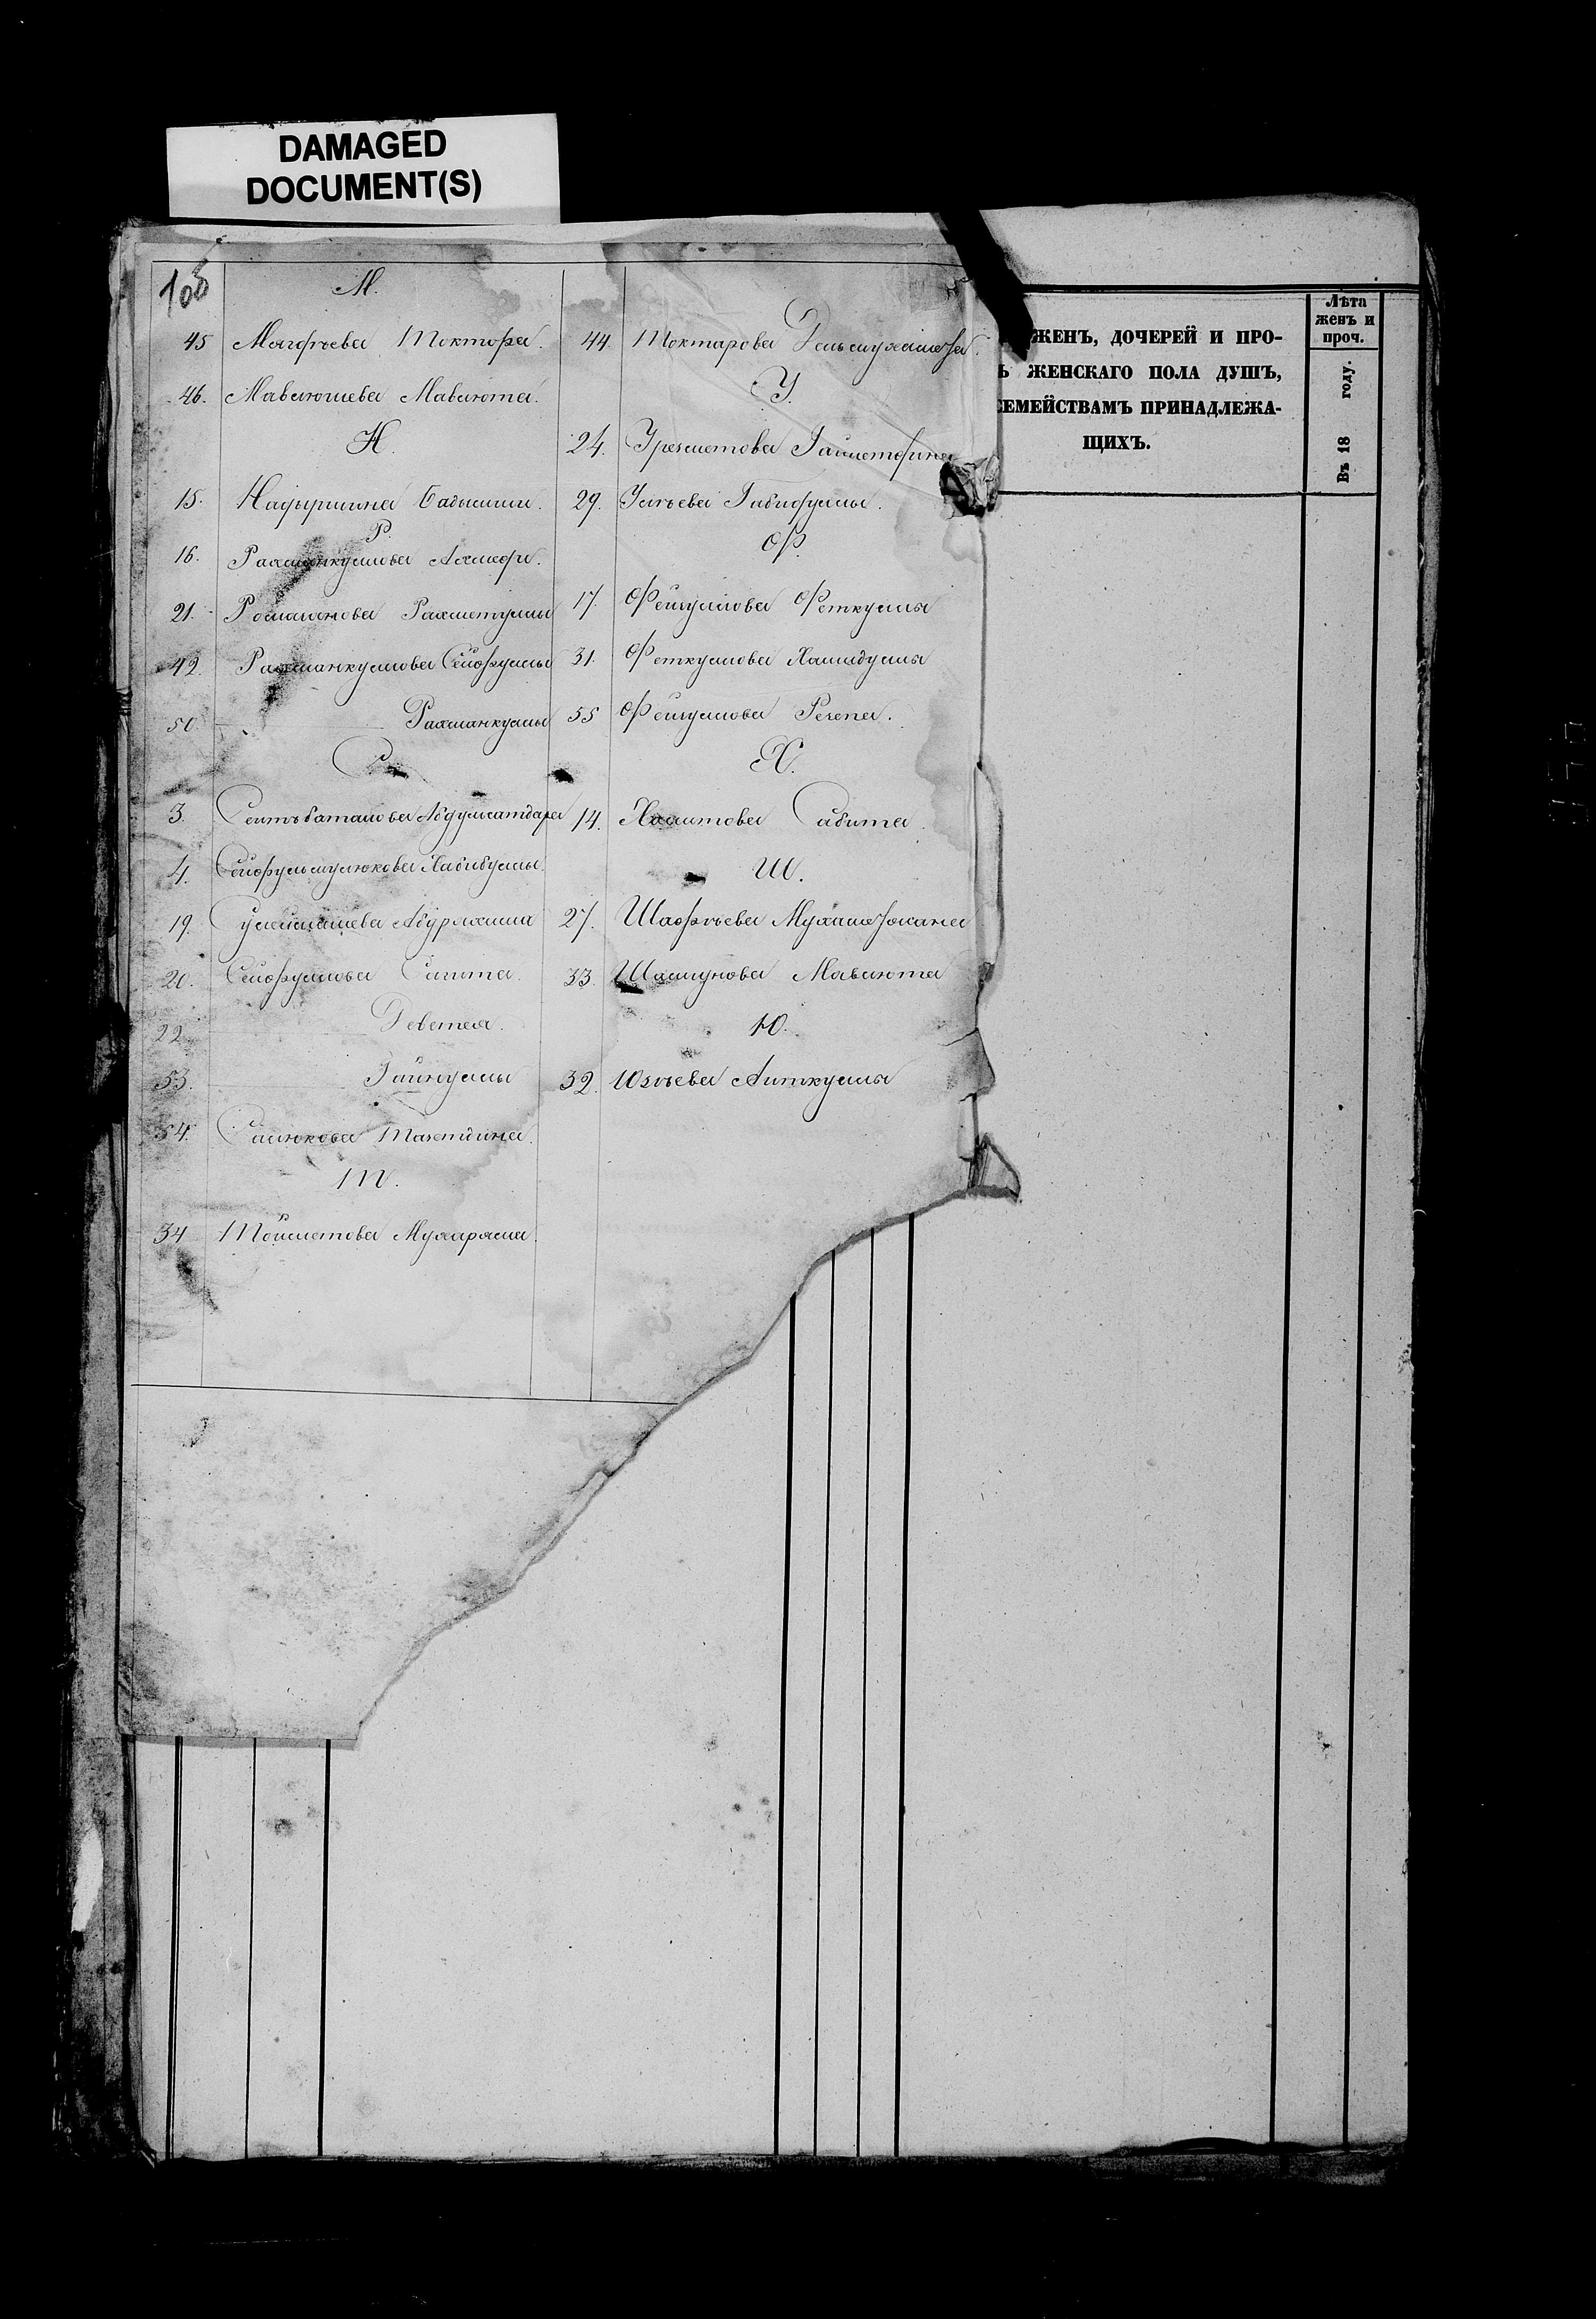 DAMAGED
DOCUMENT(S)
108
М.
45 Мягфѣева Токтора.
46. Мавлюшева Мавлюта.
Н.
15. Надыршина Бадыши.
Р.
16. Рахманкулова
21. Рахметуллы
42. Рахманкулова Сейфуллы
50. Рахманкулы
С.
3. Сеитъбаталова Абдулсатдара
4. Сейфульмулюкова Хабибуллы.
19. Сулейманова Абдрахима
20. Сейфуллова Сагита.
22. Деветея.
53. Гайнуллы
54. Салюкова Тазетдина.
Т.
34 Тойметова Мухаряма.
44. Токтарова Дельмухамета.
У.
24. Урезметова
29. Габидуллы.
Ф.
17. Фейзуллова Феткуллы
31. Феткуллова Хамидуллы
55 Фейзуллова Резепа.
Х.
14. Халитова Сабита.
Ш.
27. Шафѣева Мухаметжана
33. Шамгунова Мавлюта
Ю.
32. Юзѣева Аиткулы
ЖЕНЪ, ДОЧЕРЕЙ И ПРО-
Ъ ЖЕНСКАГО ПОЛА ДУШЪ,
СЕМЕЙСТВАМЪ ПРИНАДЛЕЖА-
ЩИХЪ.
Лѣта
женъ и
проч.
Въ 18 году.